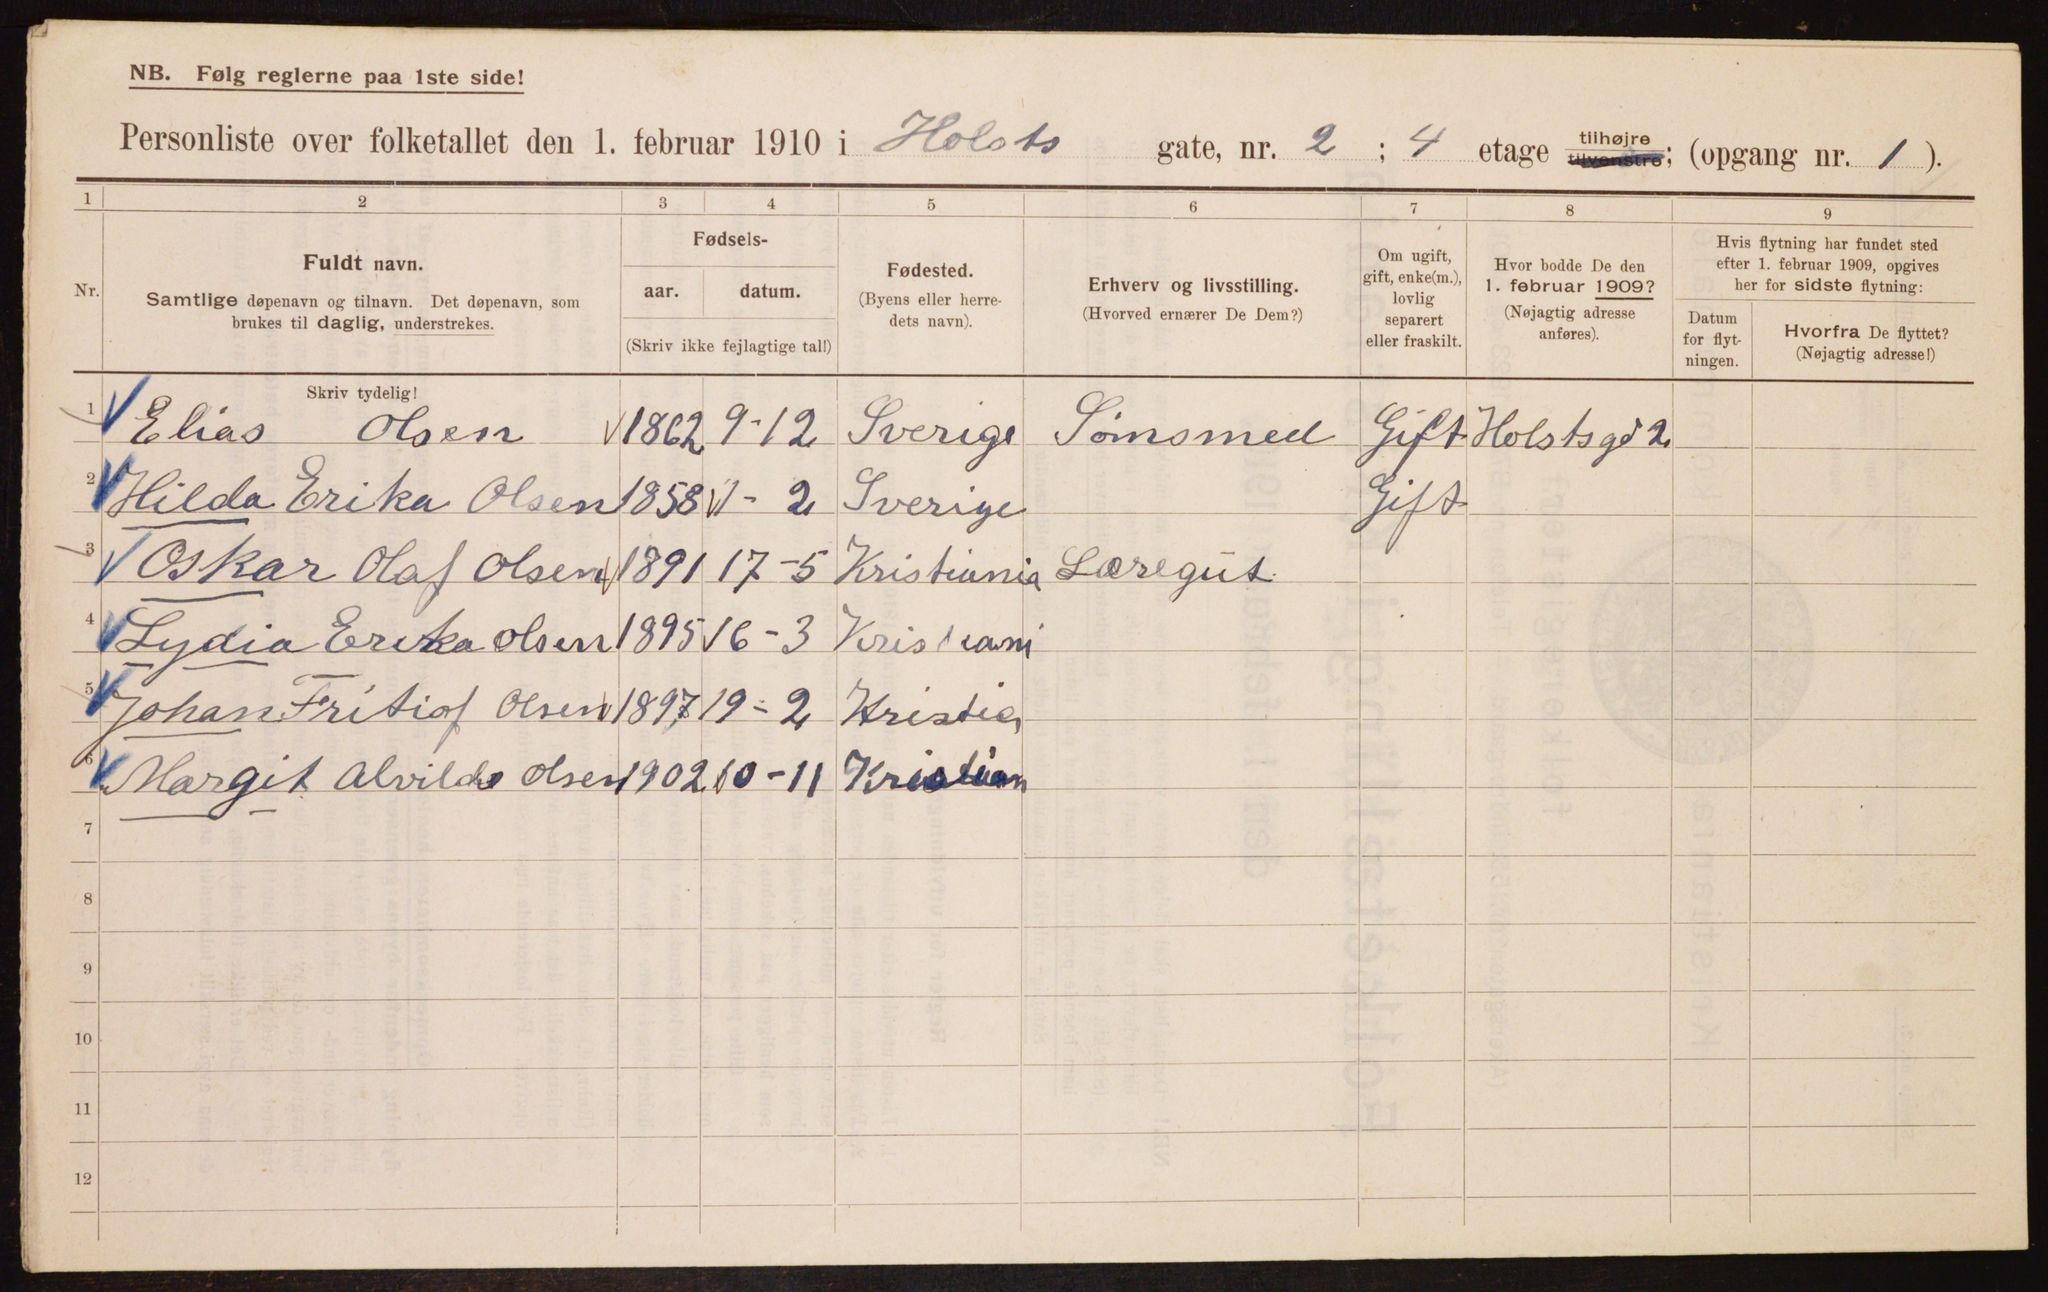 NB. Følg reglerne paa 1ste side!
Personliste over folketallet den 1. februar 1910 i Holsts gate, nr. 2 ; 4 etage tilhøjre tilvenstre; (opgang nr. 1 ).
1 2 3 4 5 6 7 8 9
Nr.
Fuldt navn.
Samtlige døpenavn og tilnavn. Det døpenavn, som
brukes til daglig, understrekes.
Fødsels-
aar. datum.
(Skriv ikke fejlagtige tal!)
Fødested.
(Byens eller herre-
dets navn).
Erhverv og livsstilling.
(Hvorved ernærer De Dem?)
Om ugift,
gift, enke(m.),
lovlig
separert
eller fraskilt.
Hvor bodde De den
1. februar 1909?
(Nøjagtig adresse
anføres).
Hvis flytning har fundet sted
efter 1. februar 1909, opgives
her for sidste flytning:
Datum
for flyt-
ningen.
Hvorfra De flyttet?
(Nøjagtig adresse!)
Skriv tydelig!
1 Elias Olsen 1862 9-12 Sverige Sømsmed Gift Holstsgd 2
2 Hilda Erika Olsen 1858 1-2 Sverige Gift
3 Oskar Olaf Olsen 1891 17-5 Kristiania Læregut
4 Lydia Erika Olsen 1895 16-3 Kristiani
5 Johan Fritiof Olsen 1897 19-2 Kristia
6 Margit Alvilde Olsen 1902 10-11 Kristian
7
8
9
10
11
12